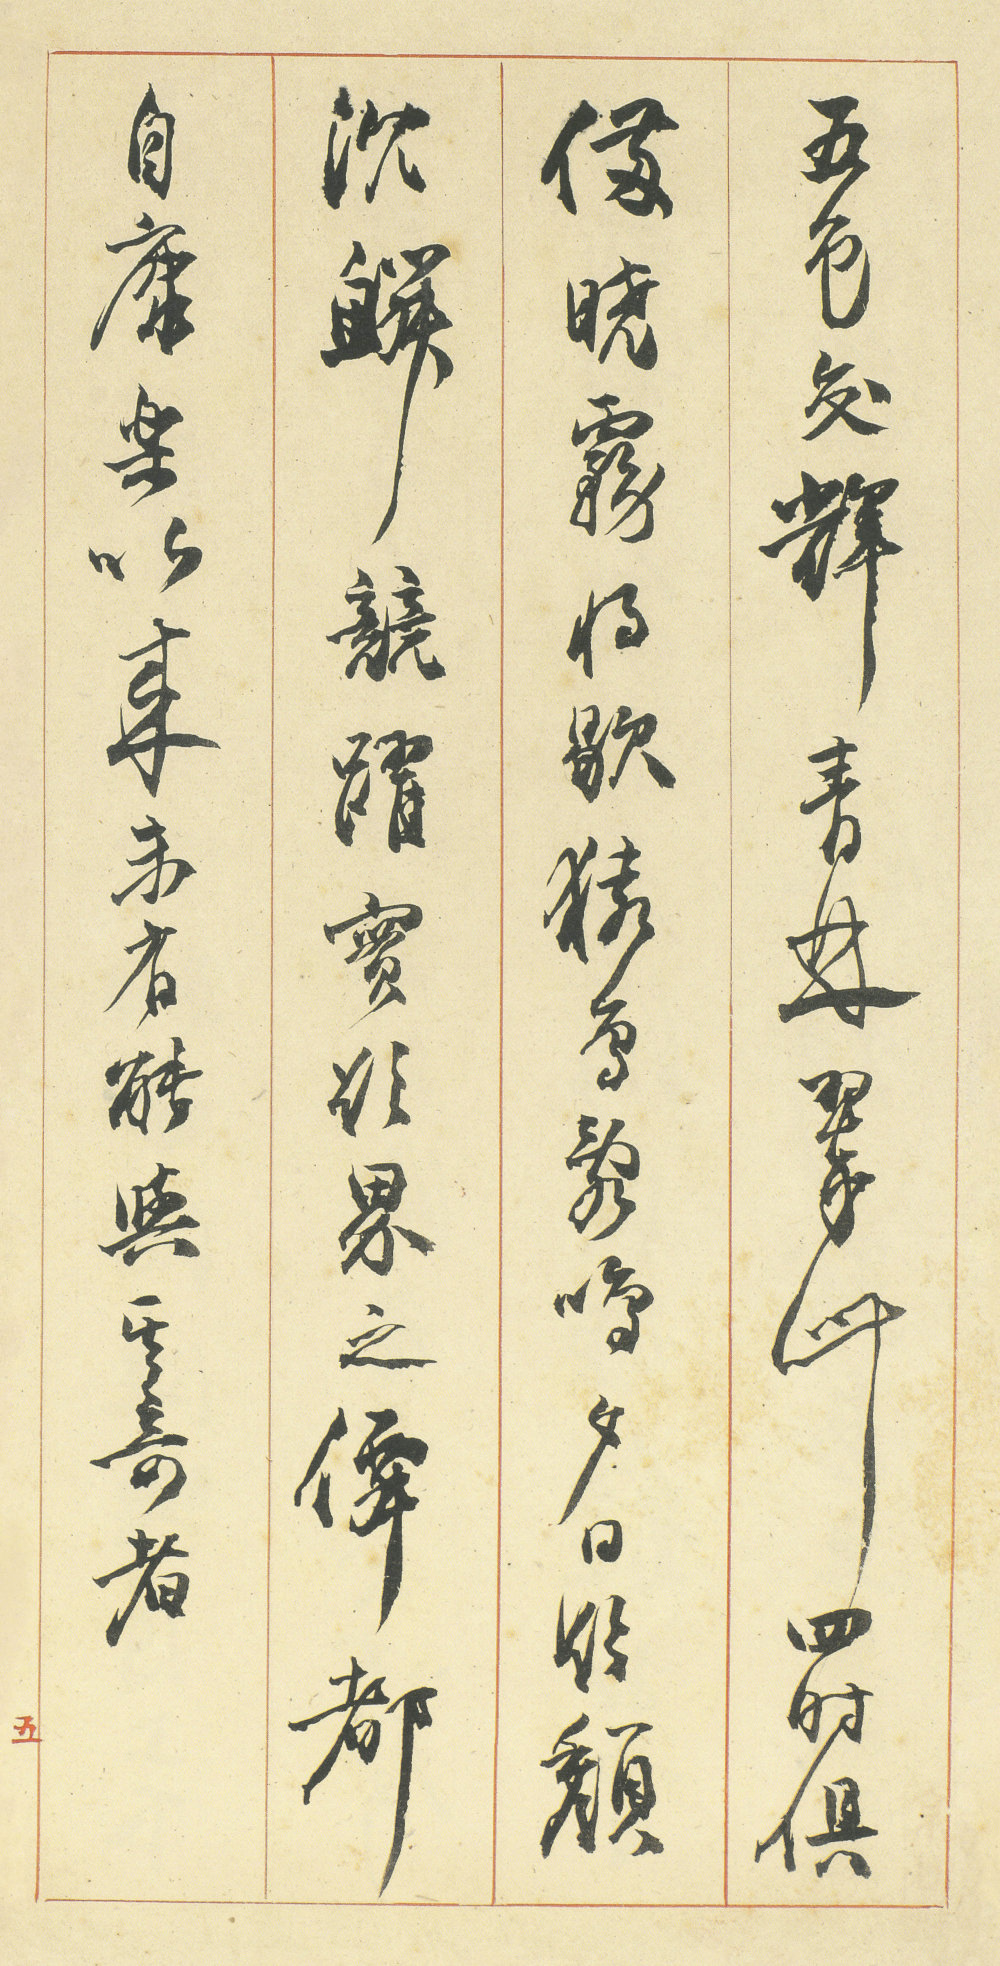 五色交輝青林翠竹四时俱
備曉霧将歇猿鳥亂鳴夕日欲頹
沈鱗競躍實欲界之僊都
自康樂以来未有能與其奇者
五